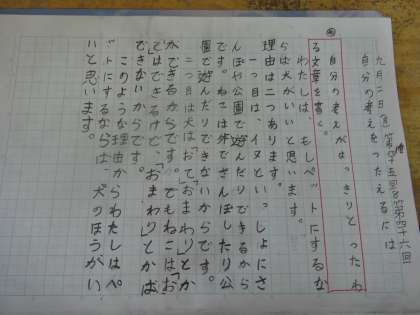 九月二日(月)第四十五・第四十六回
自分の考えをつたえるには
め
自分の考えがはっきりとつたわ
る文章を書く。
わたしは、もしペットにするな
らば犬がいいと思います。
理由は二つあります。
一つ目は、イヌといっしょにさ
んぽや公園で遊んだりできるから
です。ねこは外でさんぽしたり公
園で遊んだりできないからです。
二つ目は犬は「おて」「おまわり」とか
ができるからです。でもねこは「お
て」はできるけど、「おまわり」とかは
できないからです。
このような理由からわたしはペ
ットにするならば、犬のほうがい
いと思います。